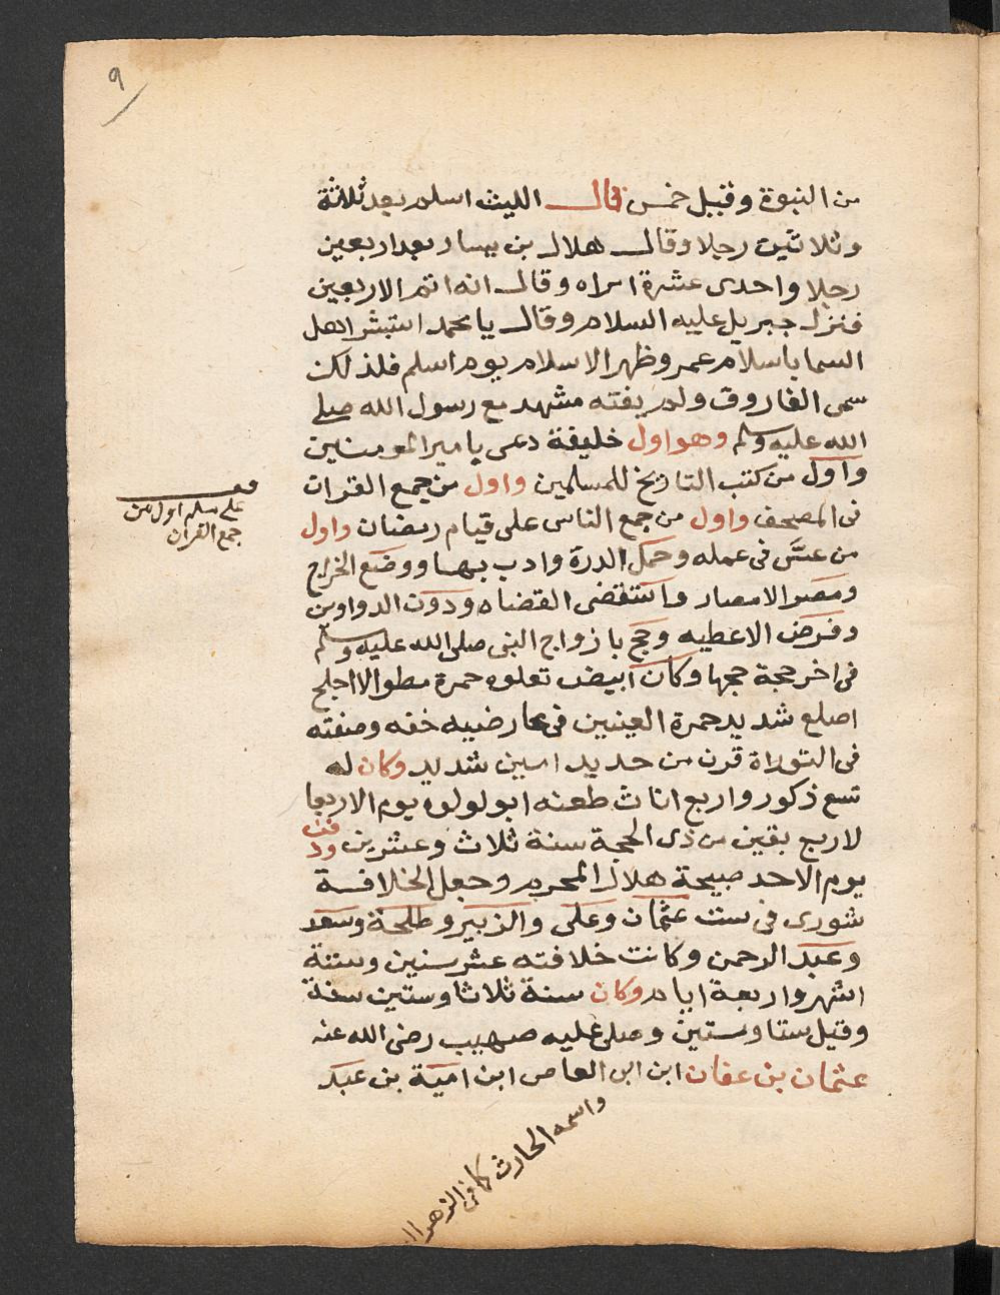 ٩
من النبوة وقبيل خمس قال الليث اسلم بعد ثلاثة
وثلاثين رجلا وقال هلال بن يسار بعد اربعين
رجلا واحدى عشرة امراه وقال انه اتم الاربعين
فنزل جبريل عليه السلام وقال يا محمد استبشر اهل
السما باسلام عمر وظهر الاسلام يوم اسلم فلذلك
سمى الفاروق ولم يفته مشهد مع رسول الله صلى
الله عليه وسلم وهو اول خليفة دعى بامير المومنين
واول من كتب التاريخ للمسلمين واول من جمع القران
فى المصحف واول من جمع الناس على قيام رمضان واول
من عسَّ فى عمله وحمل الدرة وادب بها ووضع الخراج
ومصر الامصار واستقضى القضاه ودون الدواوين
وفرض الاعطيه وحج بازواج النبى صلى الله عليه وسلم
فى اخر حجة حجها وكان ابيض تعلوه حمرة مطوالا اجلح
اصلع شديد حمرة العينين فى عارضيه خفه وصفته
فى التوراة قرن من حديد امين شديد وكان له
تسع ذكور واربع اناث طعنه ابو لولوه يوم الاربعا
لاربع بقين من ذى الحجة سنة ثلاث وعشرين ودفن
يوم الاحد صبيحة هلال المحرم وجعل الخلافة
شورى فى ست عثمان وعلى والزبير وطلحة وسعد
وعبد الرحمن وكانت خلافته عشر سنين وستة
اشهر واربعة ايام وكان سنة ثلاثا وستين سنة
وقيل ستا وستين وصلى عليه صهيب رضى الله عنه
عثمان بن عفان ابن ابى العاص ابن امية بن عبد
على اول من
جمع القران
واسمه الحارث كا فى الزهر اا